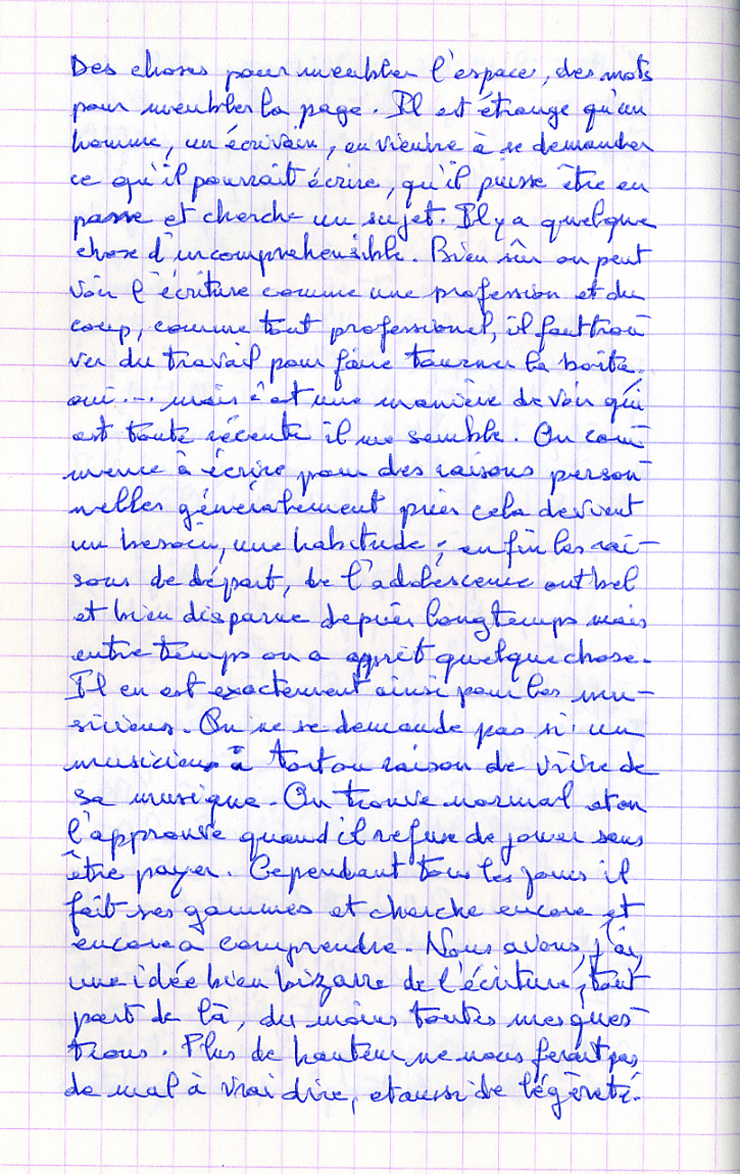 Des choses pour meubler l'espace, des mots
pour meubler la page. Il est étrange qu'un
homme, un écrivain, en vienne à se demander
ce qu'il pourrait écrire, qu'il puisse être en
panne et cherche un sujet. Il y a quelque
chose d'incompréhensible. Bien sûr on peut
voir l'écriture comme une profession et du
coup, comme tout professionnel, il faut trou
ver du travail pour faire tourner la boîte.
oui... mais c'est une manière de voir qui
est toute récente il me semble. On com-
mence à écrire pour des raisons person-
nelles généralement puis cela devient
un besoin, une habitude ; enfin les rai-
sons de départ, de l'adolescence ont bel
et bien disparue depuis longtemps mais
entre temps on a apprit quelque chose.
Il en est exactement ainsi pour les mu-
siciens. On ne se demande pas si un
musicien à tort ou raison de vivre de
sa musique. On trouve normal et on
l'approuve quand il refuse de jouer sans
être payer. Cependant tous les jours il
fait ses gammes et cherche encore et
encore a comprendre. Nous avons, j'ai,
une idée bien bizarre de l'écriture, tout
part de là, du moins toutes mes ques-
tions. Plus de hauteur ne nous ferait pas
de mal à vrai dire, et aussi de légèreté.